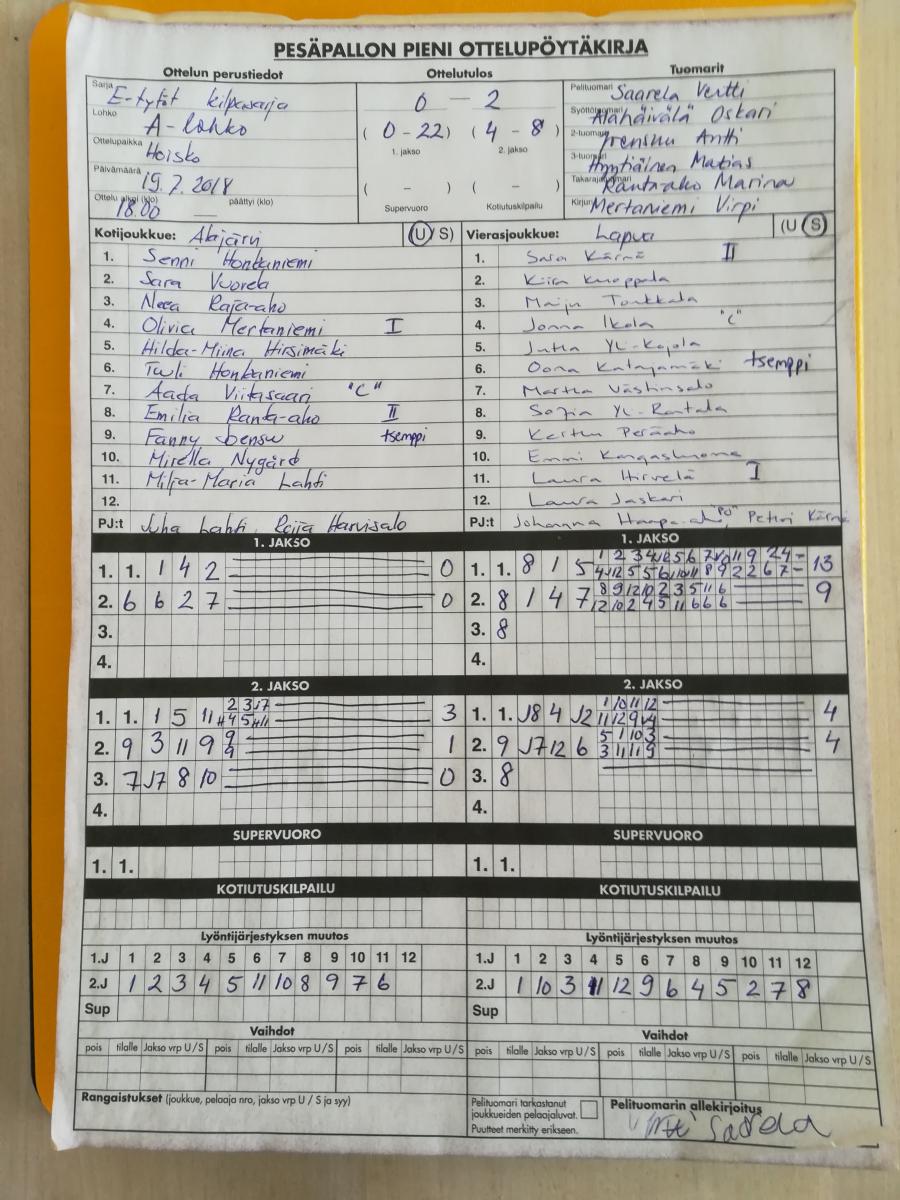 PESÄPALLON PIENI OTTELUPÖYTÄKIRJA
Ottelun perustiedot Ottelutulos Tuomarit
Sarja E-tytöt kilpasarja
Lohko A-lohko
Ottelupaikka Hoisko
Päivämäärä 19.7.2018
Ottelu alkoi (klo) 18.00 päättyi (klo)
0 – 2
(0-22) (4-8)
1. jakso 2. jakso
( – ) ( – )
Supervuoro Kotiutuskilpailu
Pelituomari Saarela Vertti
Syöttötuomari Alahäivälä Oskari
2-tuomari Jrensuu Antti
3-tuomari Hyytiäinen Matias
Takarajatuomari Ranta-aho Marina
Kirjuri Mertaniemi Virpi
Kotijoukkue: Alajärvi (U/S)
1. Senni Honkaniemi
2. Sara Vuorela
3. Neea Raja-aho
4. Olivia Mertaniemi I
5. Hilda-Miina Hirsimäki
6. Tuuli Honkaniemi
7. Aada Viitasaari "C"
8. Emilia Ranta-aho II
9. Fanny tsemppi
10. Mirella Nygård
11. Milja-Maria Lahti
12.
PJ:t Juha Lahti, Reija Harvisalo
Vierasjoukkue: Lapua (U/S)
1. Sara Kärnä II
2. Kiira Kuoppala
3. Maiju Tonkkala
4. Jonna Ikola "C"
5. Jutta Yli-Kojola
6. Oona Katajamäki tsemppi
7. Martta Västinsalo
8. Sofia Yli-Rantala
9. Kerttu Peräaho
10. Emmi Kangasluoma
11. Laura Hirvelä I
12. Laura Jaskari
PJ:t Johanna Haapa-aho "PJ" Petri Kärnä
1. JAKSO
1. 1. 1 4 2 0
2. 6 6 2 7 0
3.
4.
1. JAKSO
1. 1. 8 1 5 13
2. 8 1 4 7 9
3. 8
4.
2. JAKSO
1. 1. 1 5 11 3
2. 9 3 11 9 9 9 1
3. 7 J7 8 10 0
4.
2. JAKSO
1. 1. J8 4 J2 1 10 11 12 4
2. 9 J7 12 6 5 1 10 3 3 11 11 9 4
3. 8
4.
SUPERVUORO SUPERVUORO
1. 1. 1. 1.
KOTIUTUSKILPAILU KOTIUTUSKILPAILU
Lyöntijärjestyksen muutos
1.J 1 2 3 4 5 6 7 8 9 10 11 12
2.J 1 2 3 4 5 11 10 8 9 7 6
Sup
Lyöntijärjestyksen muutos
1.J 1 2 3 4 5 6 7 8 9 10 11 12
2.J 1 10 3 11 12 9 6 4 5 2 7 8
Sup
Vaihdot Vaihdot
pois tilalle Jakso vrp U/S pois tilalle Jakso vrp U/S pois tilalle Jakso vrp U/S
pois tilalle Jakso vrp U/S pois tilalle Jakso vrp U/S pois tilalle Jakso vrp U/S
Rangaistukset (joukkue, pelaaja nro, jakso vrp U / S ja syy)
Pelituomari tarkastanut
joukkueiden pelaajaluvat.
Puutteet merkitty erikseen.
Pelituomarin allekirjoitus
Saarela